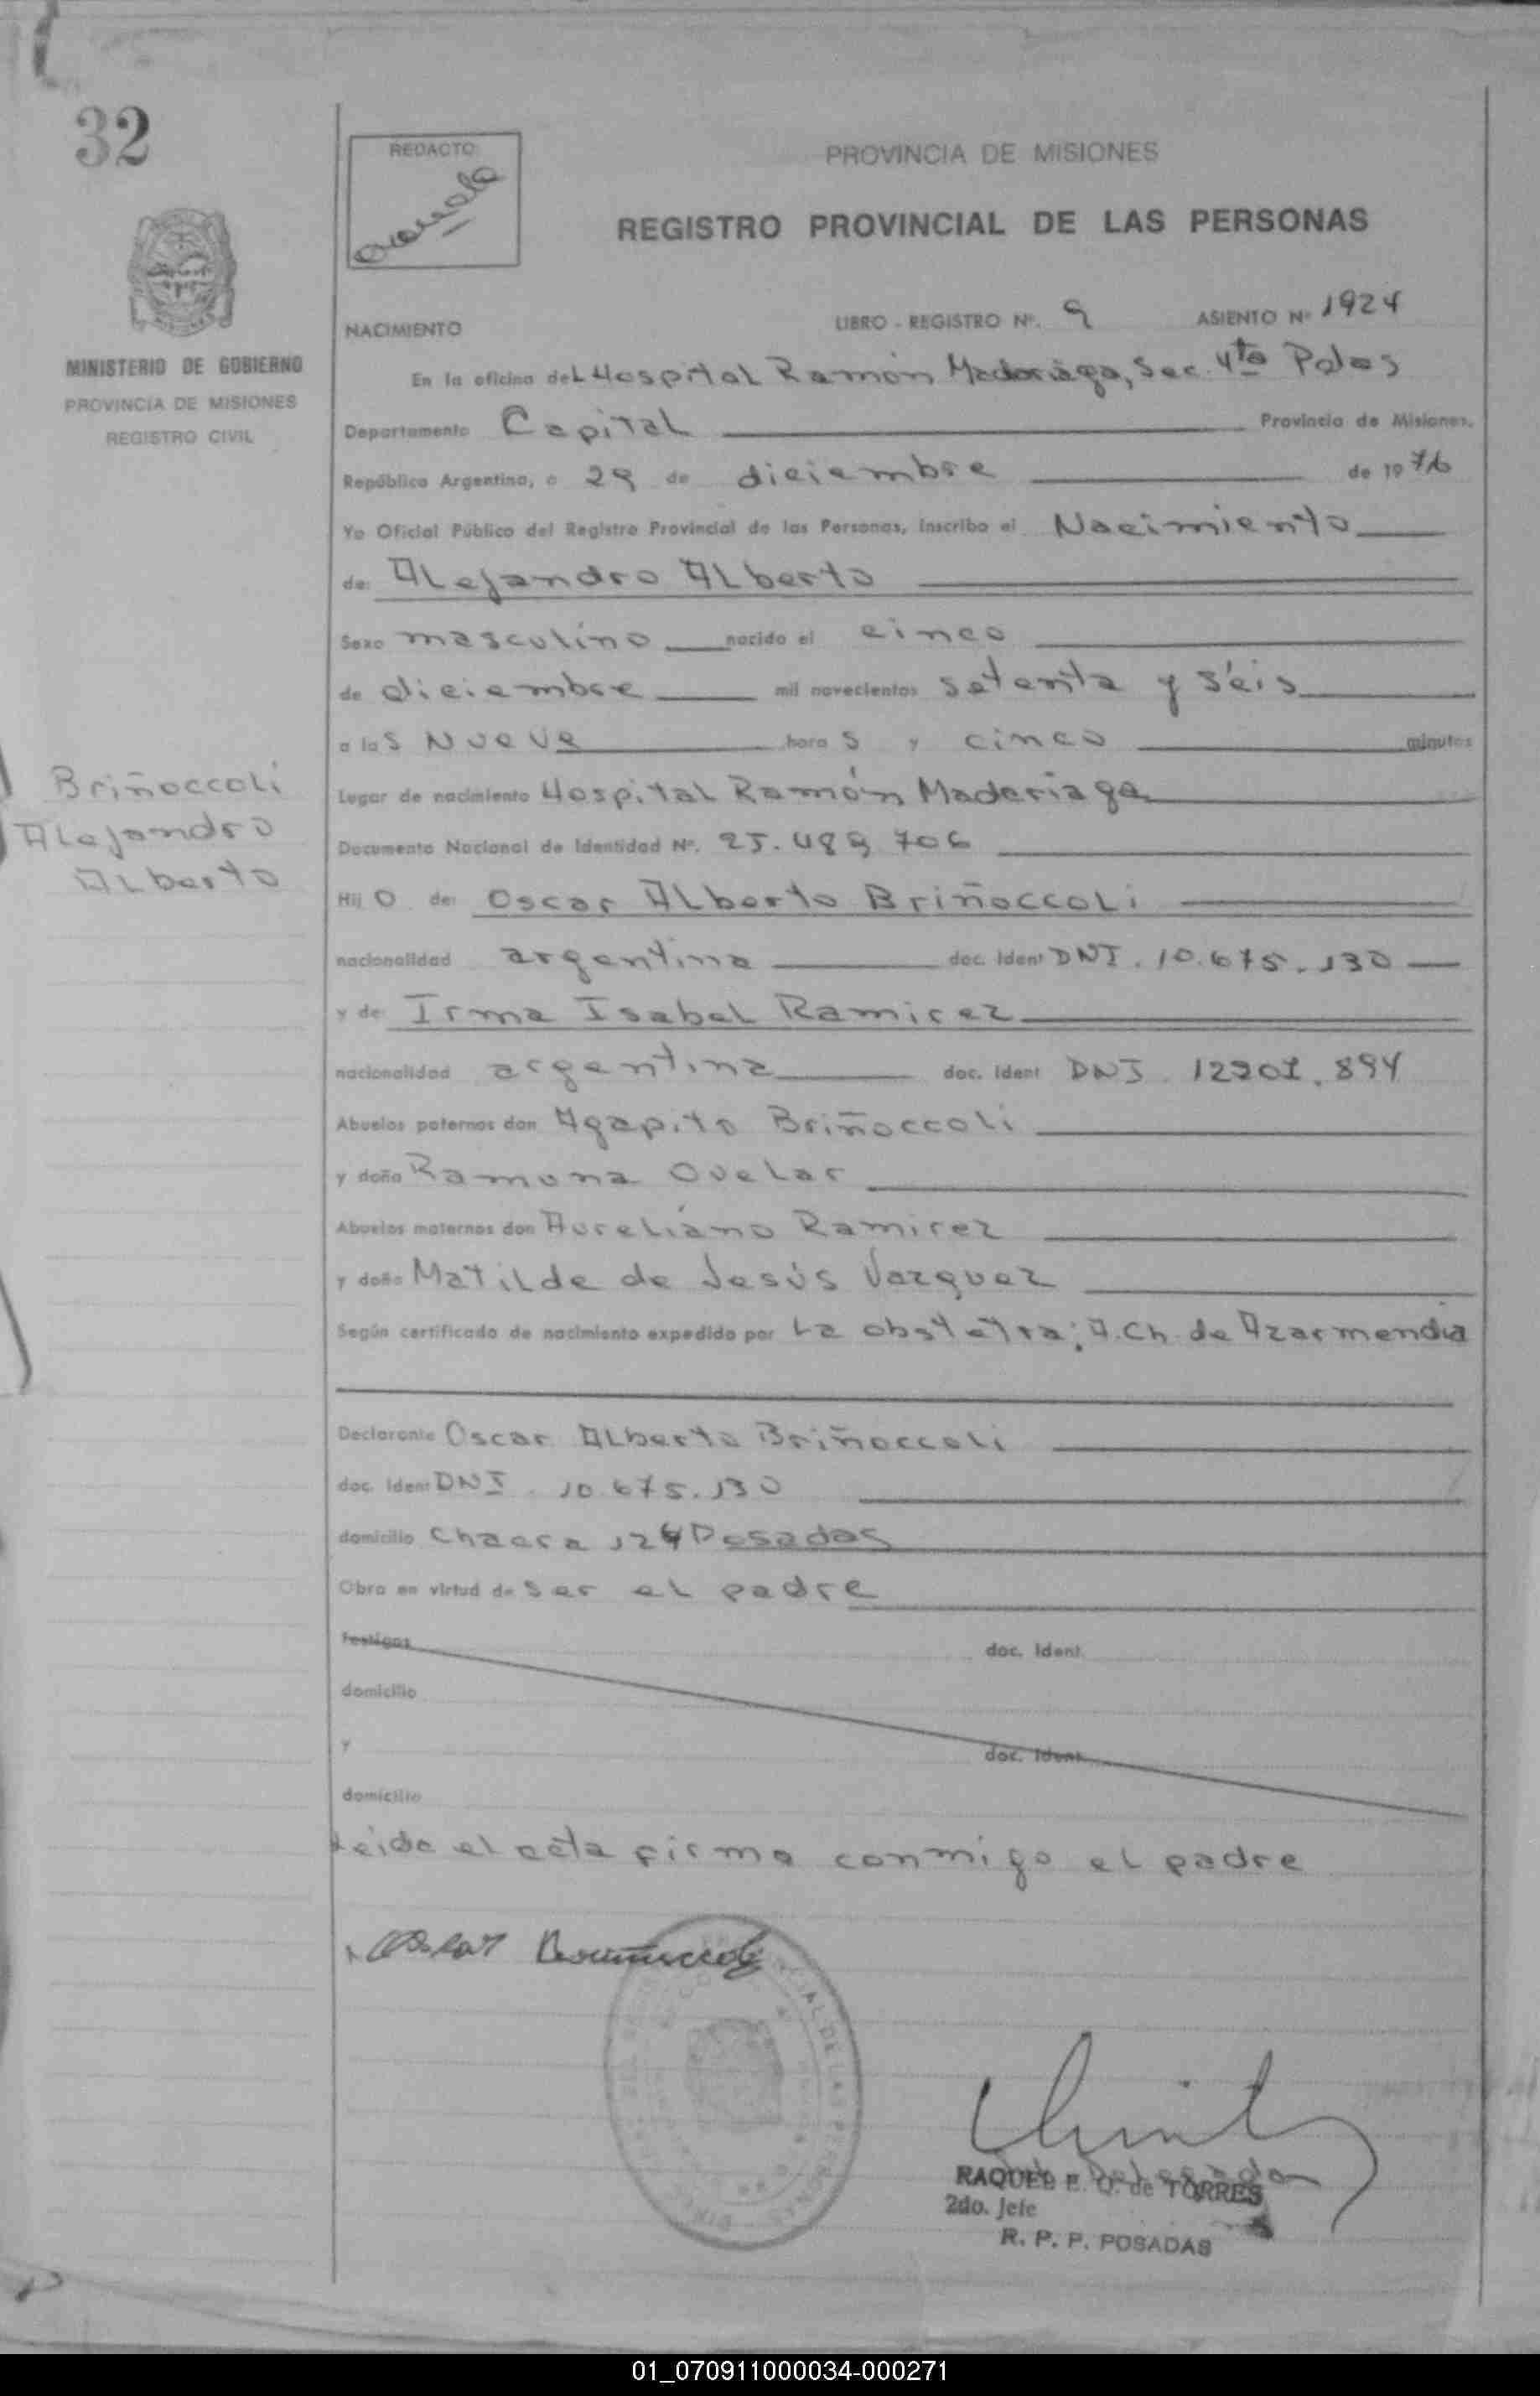 32
REDACTO
PROVINCIA DE MISIONES
REGISTRO PROVINCIAL DE LAS PERSONAS
NACIMIENTO LIBRO - REGISTRO Nº. 9 ASIENTO Nº 1924
MINISTERIO DE GOBIERNO
PROVINCIA DE MISIONES
REGISTRO CIVIL
En la oficina del Hospital Ramón Madariaga, Sec. 4ta Pdas
Departamento Capital Provincia de Misiones.
República Argentina, a 29 de diciembre de 1976
Yo Oficial Público del Registro Provincial de las Personas, inscribo el Nacimiento
de: Alejandro Alberto
Sexo masculino nacido el cinco
de diciembre mil novecientos setenta y séis
a las Nueve horas y cinco minutos
Lugar de nacimiento Hospital Ramón Maderiaga
Briñoccoli
Alejandro
Alberto
Documento Nacional de Identidad Nº. 25.489.706
Hijo de: Oscar Alberto Briñoccoli
nacionalidad argentina doc. Ident DNI. 10.675.130
y de Irma Isabel Ramirez
nacionalidad argentina doc. Ident DNI. 12201.894
Abuelos paternos don Agapito Briñoccoli
y doña Ramona Ovelar
Abuelos maternos don Aureliano Ramirez
y doña Matilde de Jesús Vazquez
Según certificado de nacimiento expedido por La obstetra; A. Ch. de Azarmendia
Declarante Oscar Alberto Briñoccoli
doc. Ident DNI. 10.675.130
domicilio Chacra 124 Posadas
Obra en virtud de ser el padre
Testigos doc. Ident.
domicilio
y doc. Ident.
domicilio
Leida el acta firma conmigo el padre
Oscar Briñoccoli
RAQUEL E. Q. de TORRES
2do. Jefe
R. P. P. POSADAS
01_070911000034-000271